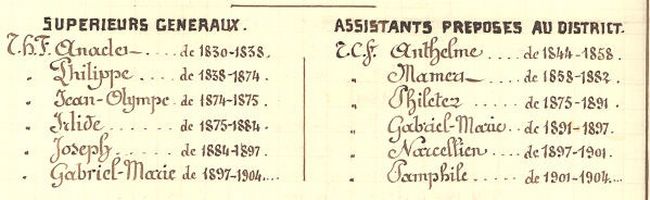 SUPERIEURS GENERAUX.
T.h.F. Anaclet .... de 1830-1838.
" Philippe ...... de 1838-1874.
" Jean-Olympe. de 1874-1875.
" Irlide ....... de 1875-1884.
" Joseph ...... de 1884-1897.
" Gabriel-Marie de 1897-1904....
ASSISTANTS PREPOSES AU DISTRICT.
T.C.F. Anthelme .... de 1844-1858.
" Mamert ..... de 1858-1882.
" Philetez ..... de 1875-1891.
" Gabriel-Marie.. de 1891-1897.
" Narcellien ... de 1897-1901.
" Pamphile .... de 1901-1904...